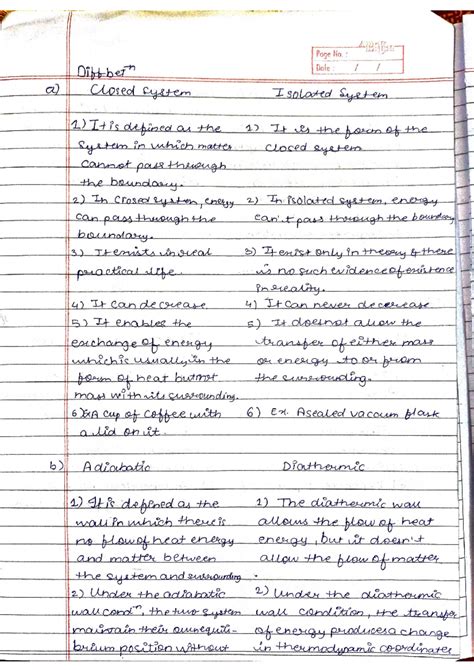 Page No. :
Date : / /
Diff betn
a) Closed System Isolated System
1) It is defined as the 1) It is the form of the
System in which matter closed system
cannot pass through
the boundary.
2) In Closed System, energy 2) In isolated system, energy
can pass through the can't pass through the boundary
boundary.
3) It exists in real 3) It exist only in theory & there
practical life. is no such evidence of existence
in reality.
4) It can decrease. 4) It can never decrease.
5) It enables the 5) It doesnot allow the
exchange of energy transfer of either mass
which is usually in the or energy to or from
form of heat but not the surrounding.
mass with its surrounding.
6) Ex A cup of coffee with 6) Ex. A sealed vacuum flask
a lid on it.
b) Adiabatic Diathermic
1) It is defined as the 1) The diathermic wall
wall in which there is allows the flow of heat
no flow of heat energy energy, but it doesn't
and matter between allow the flow of matter
the system and surrounding.
2) Under the adiabatic 2) Under the diathermic
wall condn, the two system wall condition, the transfer
maintain their own equili- of energy produces a change
brium position without in thermodynamic coordinates